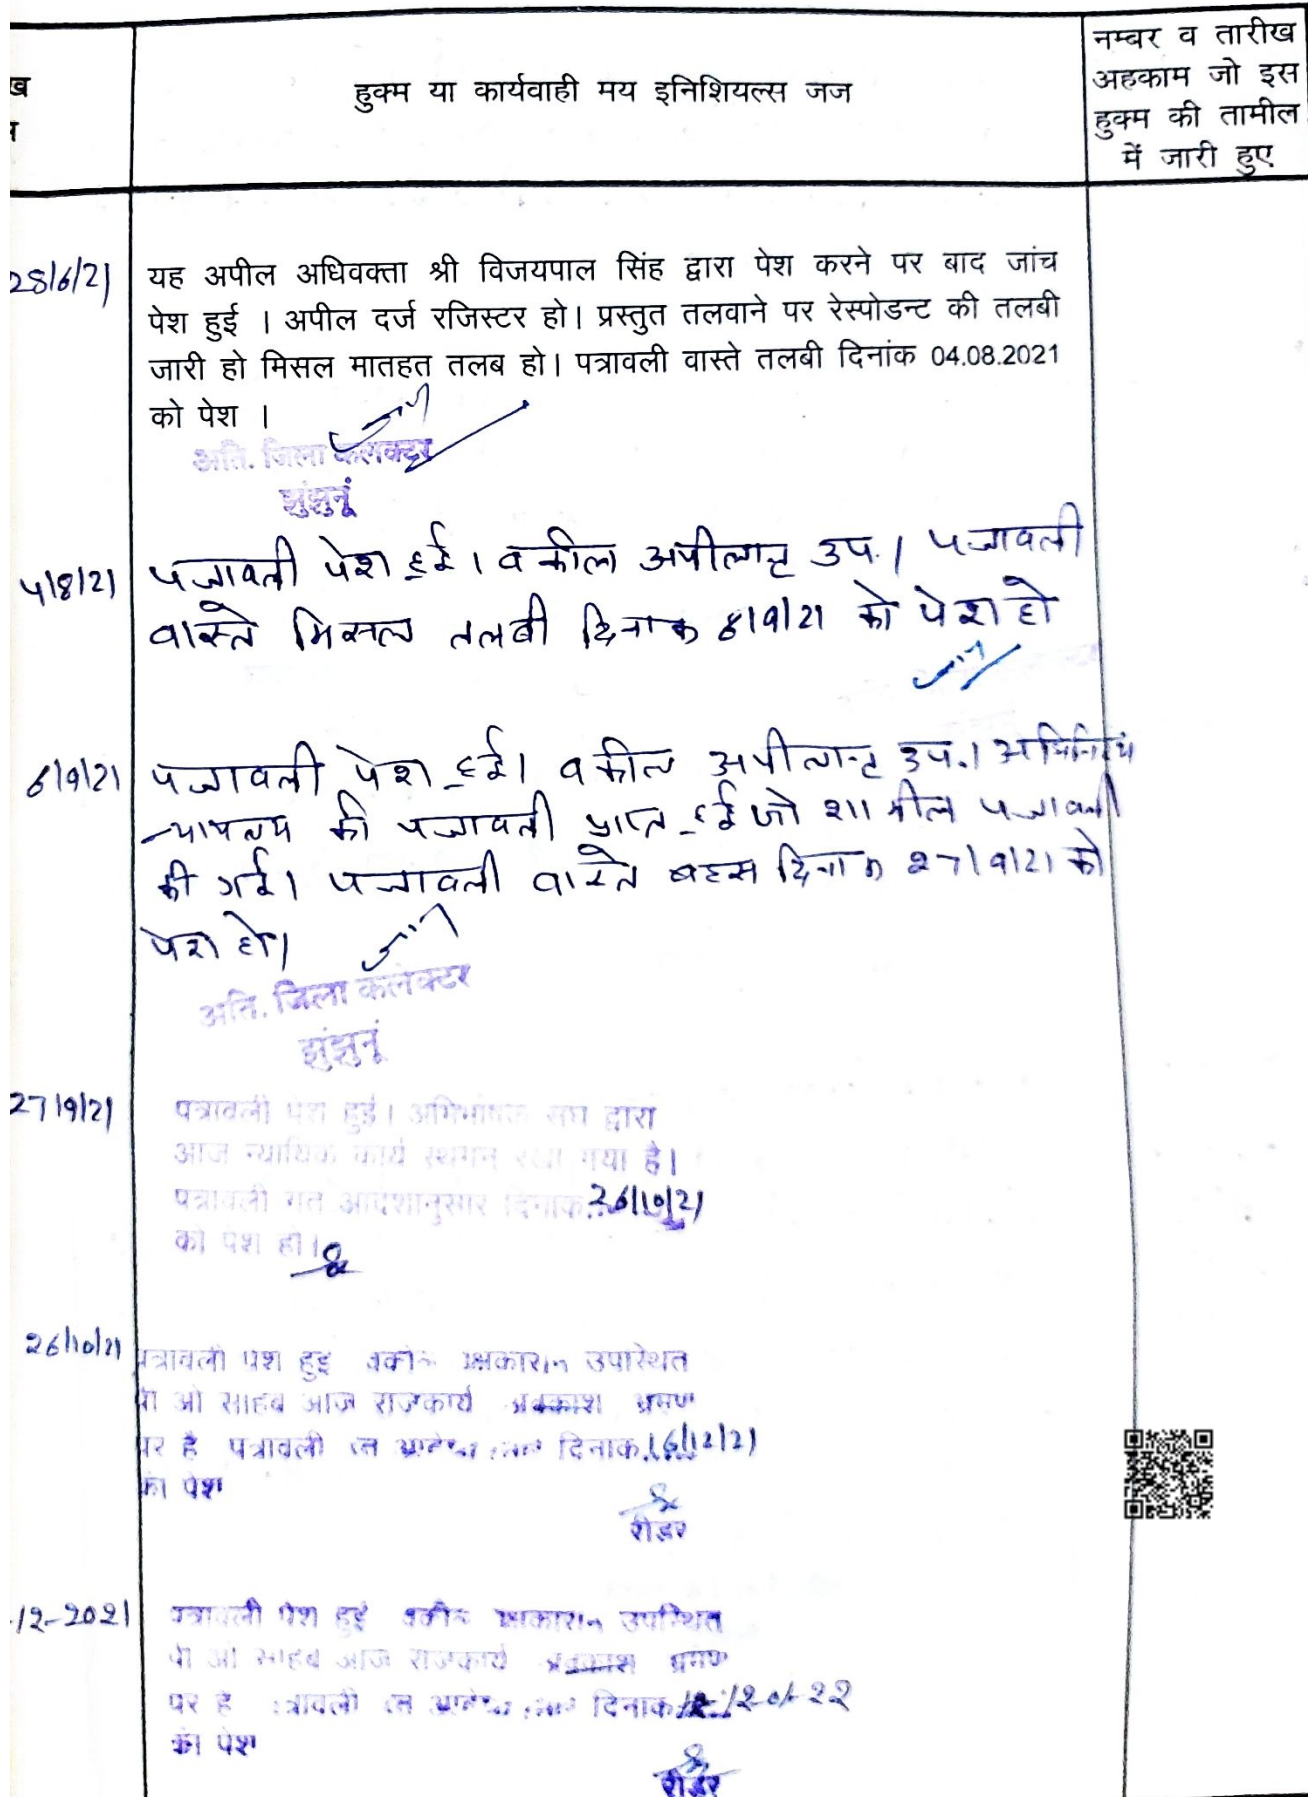 ख
हुक्म या कार्यवाही मय इनिशियल्स जज
नम्बर व तारीख
अहकाम जो इस
हुक्म की तामील
में जारी हुए
28/6/21
यह अपील अधिवक्ता श्री विजयपाल सिंह द्वारा पेश करने पर बाद जांच
पेश हुई । अपील दर्ज रजिस्टर हो। प्रस्तुत तलवाने पर रेस्पोडन्ट की तलबी
जारी हो मिसल मातहत तलब हो। पत्रावली वास्ते तलबी दिनांक 04.08.2021
को पेश ।
अति. जिला कलक्टर
झुंझुनूं
4/8/21
पत्रावली पेश हुई। वकील अपीलान्ट उप.। पत्रावली
वास्ते मिसल तलबी दिनांक 6/9/21 को पेश हो
6/9/21
पत्रावली पेश हुई। वकील अपीलान्ट उप.।
न्यायालय की पत्रावली प्राप्त हुई जो शामील पत्रावली
की गई। पत्रावली वास्ते बहस दिनांक 27/9/21 को
पेश हो।
अति. जिला कलेक्टर
झुंझुनूं
27/9/21
पत्रावली पेश हुई। अभिभाषक संघ द्वारा
आज न्यायिक कार्य स्थगन रखा गया है।
पत्रावली गत आदेशानुसार दिनांक..26/10/21
को पेश हो।
26/10/21
पत्रावली पेश हुई वकील पक्षकारान उपस्थित
पी ओ साहब आज राजकार्य अवकाश भ्रमण
पर है पत्रावली दिनांक.16/12/21
को पेश
रीडर
-12-2021
पत्रावली पेश हुई वकील पक्षकारान उपस्थित
पी ओ साहब आज राजकार्य अवकाश भ्रमण
पर है पत्रावली दिनांक
को पेश
रीडर